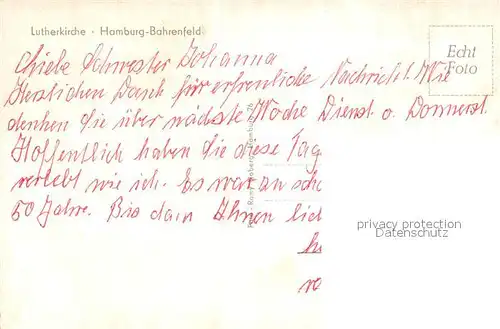 Lutherkirche · Hamburg-Bahrenfeld
Echt
Foto
Liebe Schwester Johanna
Herzlichen Dank für erfreuliche Nachricht. Wie
denken Sie über nächste Woche Dienst. o. Donnerst.
Hoffentlich haben Sie diese Tag
verlebt wie ich. Es war an
50 Jahre. Bis dann Ihnen
privacy protection
Datenschutz